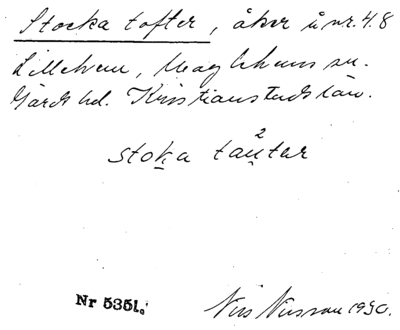 Stocka tofter, åker å nr. 4.8
Lillehem, Maglehems sn.
Gärds hd. Kristianstads län.
2
stoka tau̯tar
Nr 5351.
Nils Nilsson 1930.